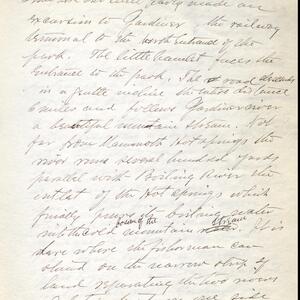 excursion to Gardiner, the railway
terminal to the North Entrance of the
park. The little hamlet faces the
Entrance to the park. The road
in a gentle incline the entire distance
and follows Gardiner river
a beautiful mountain stream. Not
far from Mammoth Hot springs the
river runs several hundred yards
parallel with Boiling River the
outlet of the Hot springs which
finally pours its boiling water
into the cold mountain stream. It is
here where the fisherman can
stand on the narrow strip of
land separating the two rivers